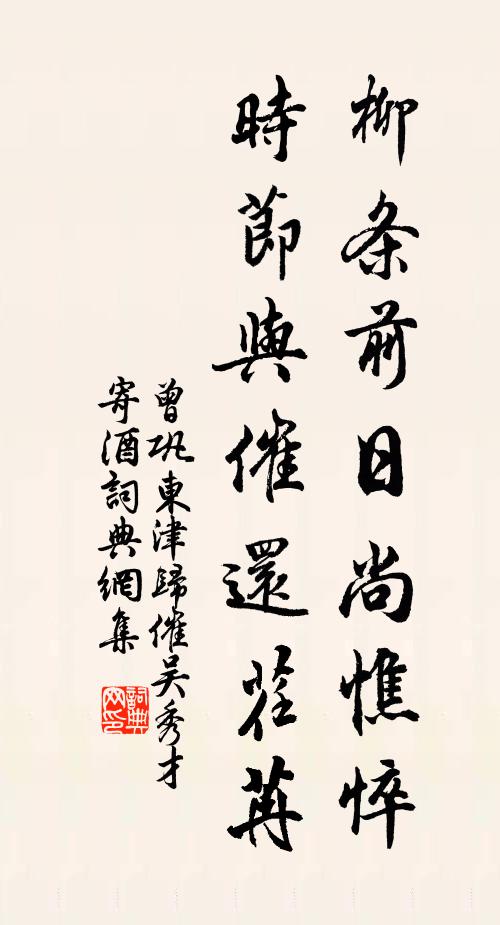 柳条前日尚憔悴
時節與催還荏苒
曾巩東津歸催吴秀才
寄酒詞典網集
詞典网印